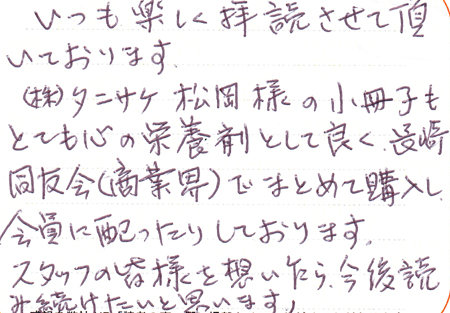 いつも楽しく拝読させて頂
いております。
(株)タニサケ 松岡様の小冊子も
とても心の栄養剤として良く、長崎
同友会(商業界)でまとめて購入し、
会員に配ったりしております。
スタッフの皆様を想いたら、今後読
み続けたいと思います!